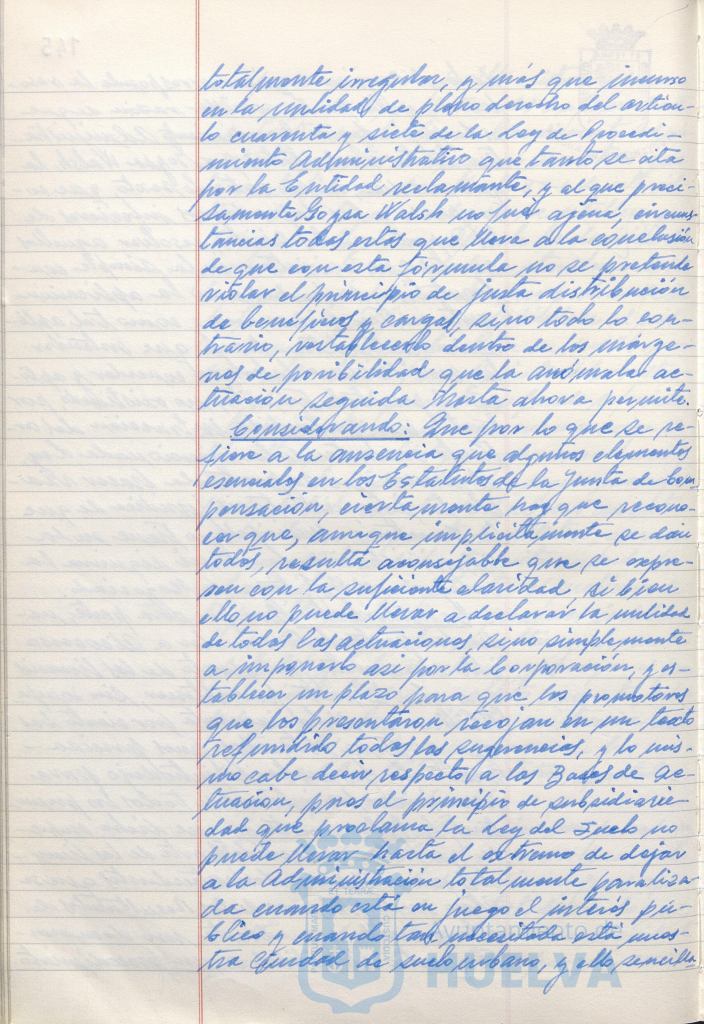 totalmente irregular, y más que incurso
en la nulidad de pleno derecho del artícu-
lo cuarenta y siete de la Ley de Procedi-
miento Administrativo que tanto se cita
por la Entidad reclamante, y al que preci-
samente Goysa Walsh no fué ajena, circuns-
tancias todas estas que lleva a la conclusión
de que con esta fórmula no se pretende
violar el principio de justa distribución
de beneficios y cargas, sino todo lo con-
trario, restablecerlo dentro de los márge-
nes de posibilidad que la anómala ac-
tuación seguida hasta ahora permite.
Considerando: Que por lo que se re-
fiere a la ausencia que algunos elementos
esenciales en los Estatutos de la Junta de Com
pensación, ciertamente hay que recono-
cer que, aunque implícitamente se dan
todos, resulta aconsejable que se expre-
sen con la suficiente claridad, si bien
ello no puede llevar a declarar la nulidad
de todas las actuaciones, sino simplemente
a imponerlo así por la Corporación, y es-
tablecer un plazo para que los promotores
que los presentaron recojan en un texto
refundido todas las sugerencias, y lo mis-
mo cabe decir respecto a las Bases de Ac-
tuación, pues el principio de subsidiarie-
dad que proclama la Ley del Suelo no
puede llevar hasta el extremo de dejar
a la Administración totalmente paraliza-
da cuando está en juego el interés pú-
blico y cuando tan necesitada está nues-
tra Ciudad de suelo urbano, y ello sencilla
Ayuntamiento de
HUELVA
145